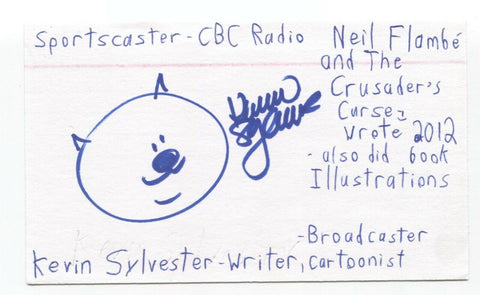 Sportscaster - CBC Radio
Neil Flambé
and The
Crusader's
Curse -
wrote 2012
- also did book
Illustrations
- Broadcaster
Kevin Sylvester - Writer, Cartoonist